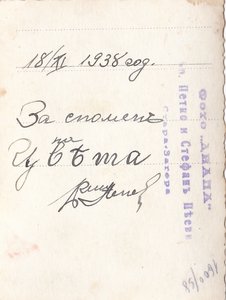 18/XI 1938 год.
За споменъ
на
Цвѣта
Фото „ДИАНА“
Петко и Стефанъ
Стара-Загора
1600/58